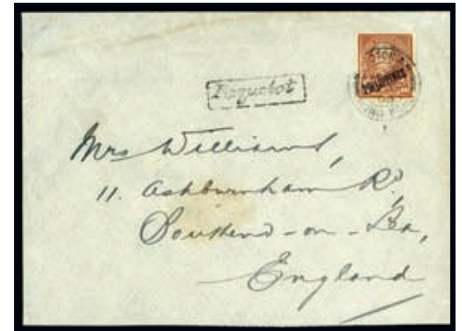 Paquebot
Mrs Williams,
11. Ashburnham Rd,
Southend-on-Sea,
England